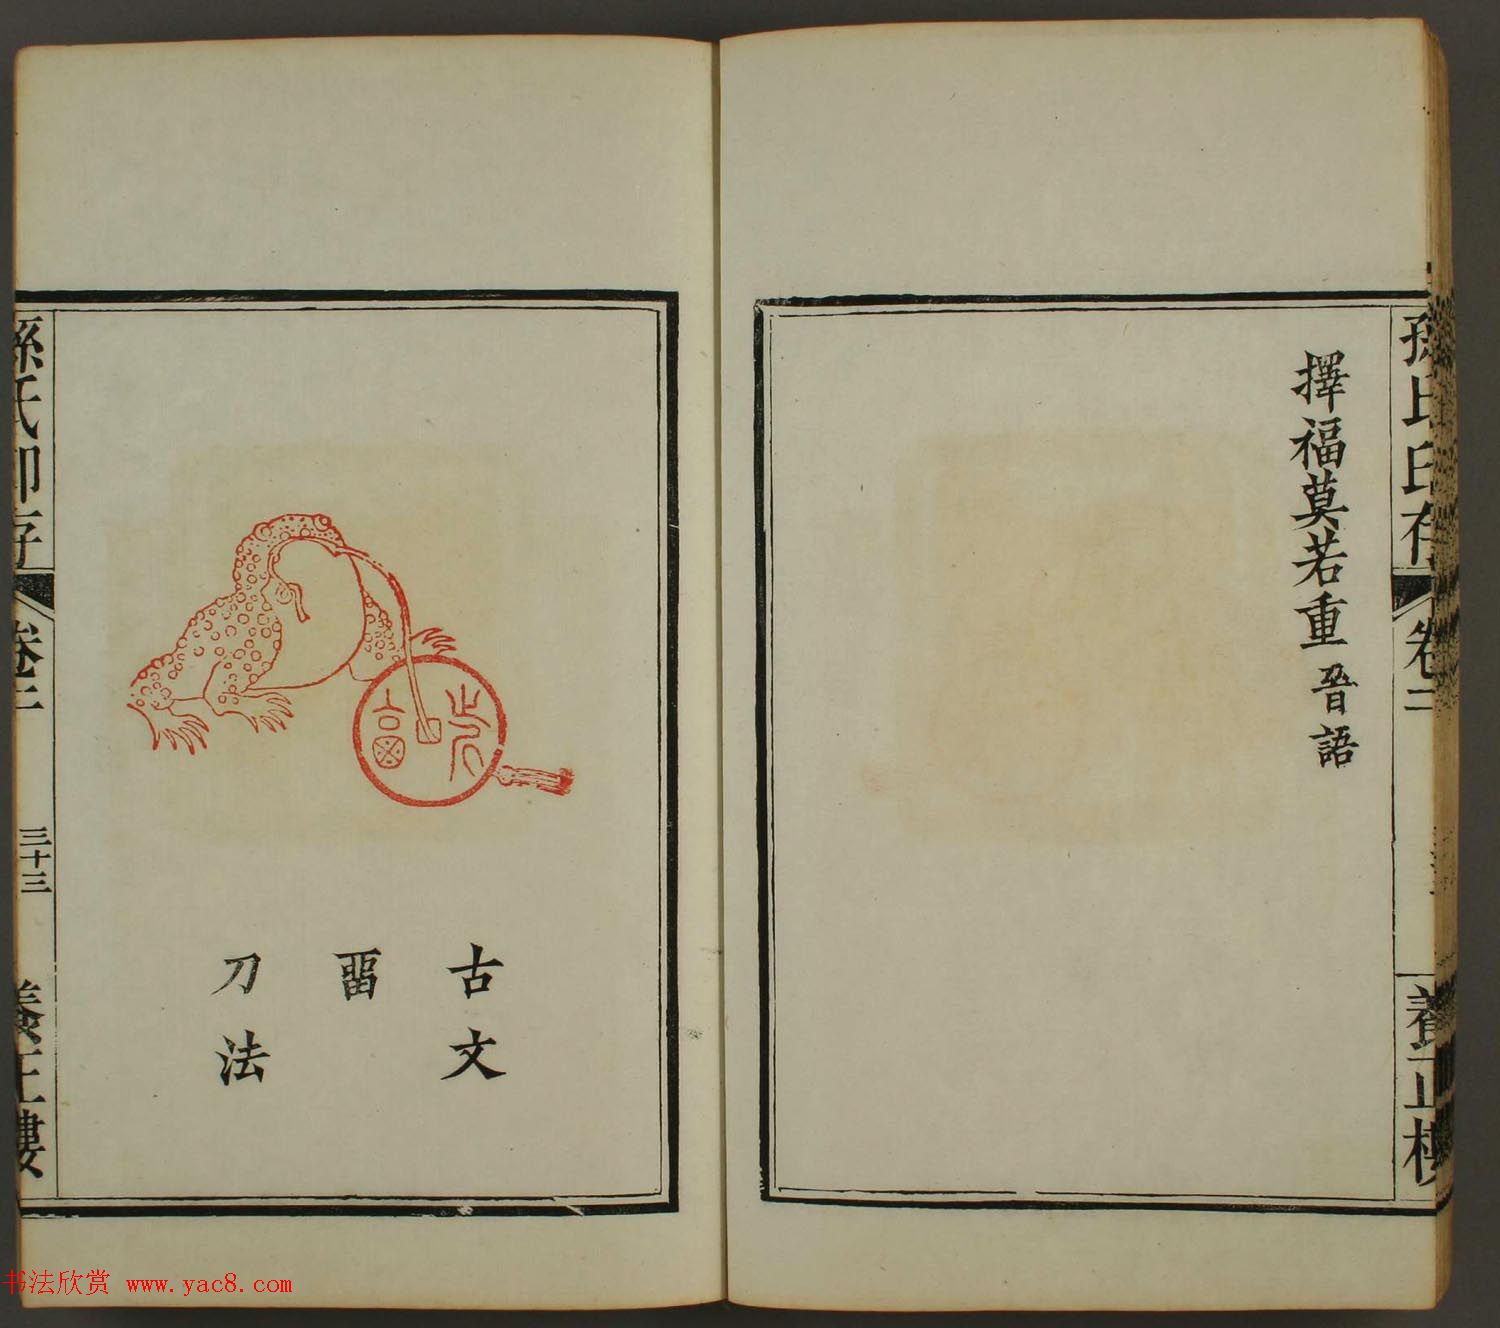 孫氏印存
卷二
養正樓
擇福莫若重 晉語
古文
畱
刀法
孫氏印存
卷二
三十三
養正樓
书法欣赏 www.yac8.com